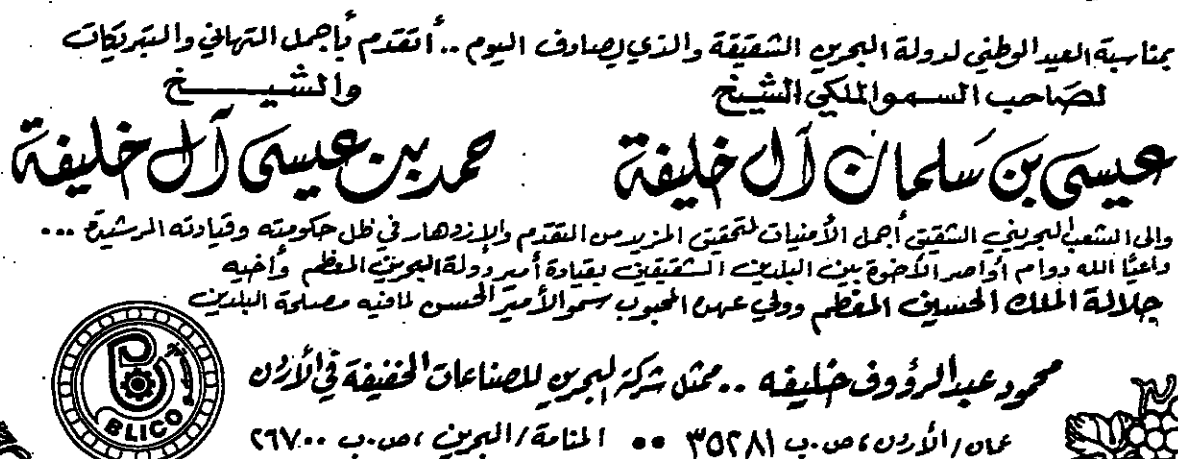 بمناسبة العيد الوطني لدولة البحرين الشقيقة والذي يصادف اليوم .. أتقدم بأجمل التهاني والتبريكات
لصاحب السمو الملكي الشيخ
عيسى بن سلمان آل خليفة
والشيخ
حمد بن عيسى آل خليفة
والى الشعب البحريني الشقيق أجمل الأمنيات لتحقيق المزيد من التقدم والإزدهار في ظل حكومته وقيادته الرشيدة ...
داعيًا الله دوام أواصر الأخوة بين البلدين الشقيقين بقيادة أمير دولة البحرين المعظم وأخيه
جلالة الملك الحسين المعظم وولي عهده المحبوب سمو الأمير الحسن لما فيه مصلحة البلدين
محمود عبدالرؤوف خليفه .. ممثل شركة البحرين للصناعات الخفيفة في الأردن
عمان / الأردن ، ص.ب ٣٥٢٨١ •• المنامة / البحرين ، ص.ب ٢٦٧٠٠
BLICO